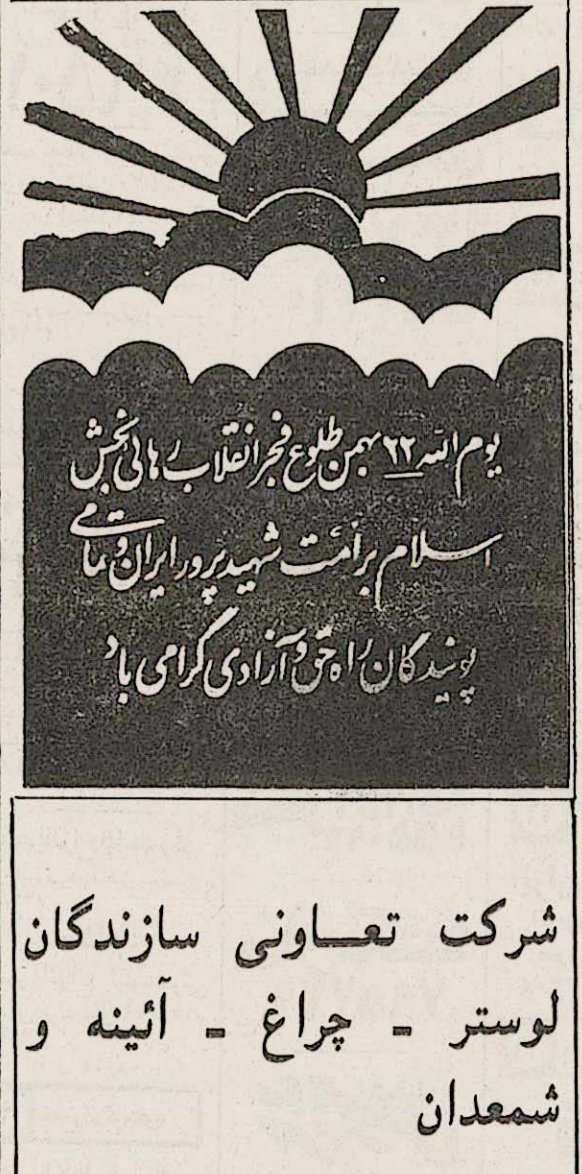 یوم الله ۲۲ بهمن طلوع فجر انقلاب رهائی بخش
اسلام بر امت شهید پرور ایران و تمامی
پویندگان راه حق و آزادی گرامی باد
شرکت تعـــاونی سازندگان
لوستر ـ چراغ ـ آئینه و
شمعدان